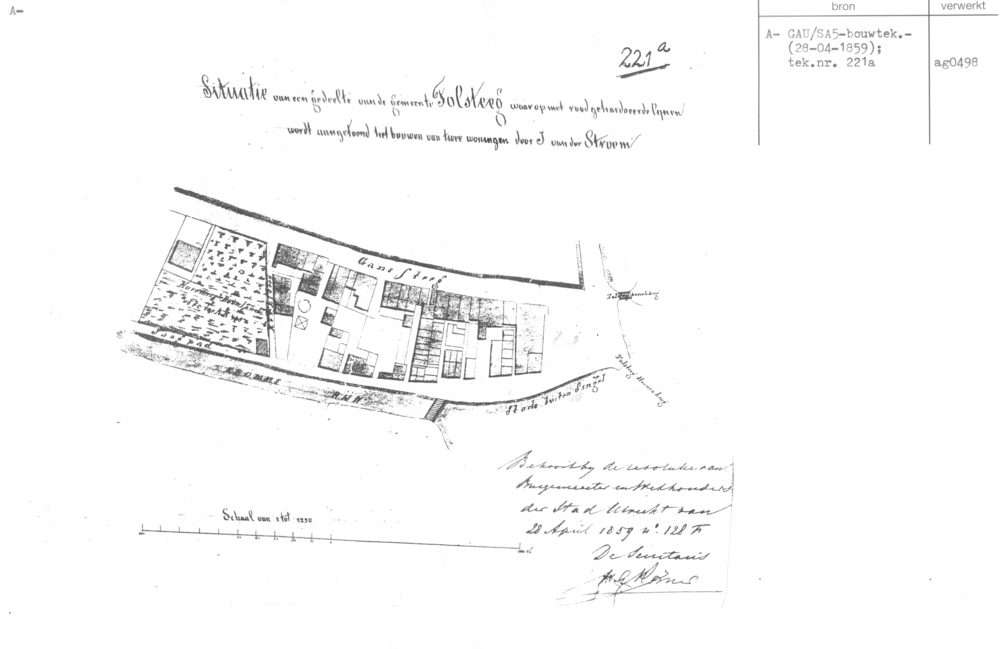 A-
bron
verwerkt
A- GAU/SA5-bouwtek.-
(28-04-1859);
tek.nr. 221a
ag0498
221a
Situatie van een gedeelte van de gemeente Tolsteeg waar op met rood gehardseerde lijnen
wordt aangetoond het bouwen van twee woningen door J van der Stroom
Gans Steeg
Jaagpad
KROMME
RIJN
Stads Buiten Singel
Schaal van 1 tot 1250
Behoort by de resolutie van
Burgemeester en Wethouders
der Stad Utrecht van
28 April 1859 no. 128 F
De Secretaris